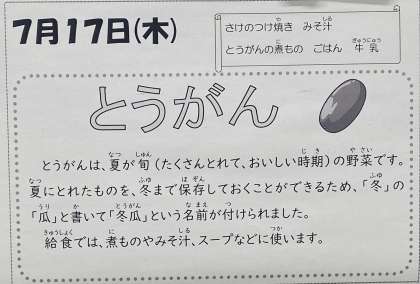 7月17日(木)
さけのつけ焼き みそ汁
とうがんの煮もの ごはん 牛乳
とうがん
とうがんは、夏が旬(たくさんとれて、おいしい時期)の野菜です。
夏にとれたものを、冬まで保存しておくことができるため、「冬」の
「瓜」と書いて「冬瓜」という名前が付けられました。
給食では、煮ものやみそ汁、スープなどに使います。